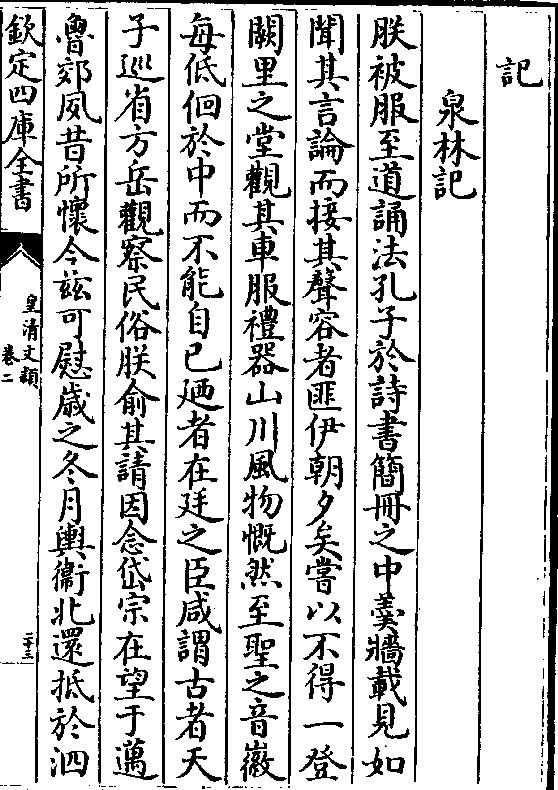 記
泉林記
朕被服至道誦法孔子於詩書簡冊之中羮牆載見如
聞其言論而接其聲容者匪伊朝夕矣嘗以不得一登
闕里之堂觀其車服禮器山川風物慨然至聖之音徽
每低佪於中而不能自已廼者在廷之臣咸謂古者天
子巡省方岳觀察民俗朕俞其請因念岱宗在望于邁
魯郊夙昔所懷今兹可慰歲之冬月輿衞北還抵於泗
欽定四庫全書
皇清文頴
卷二
二十三